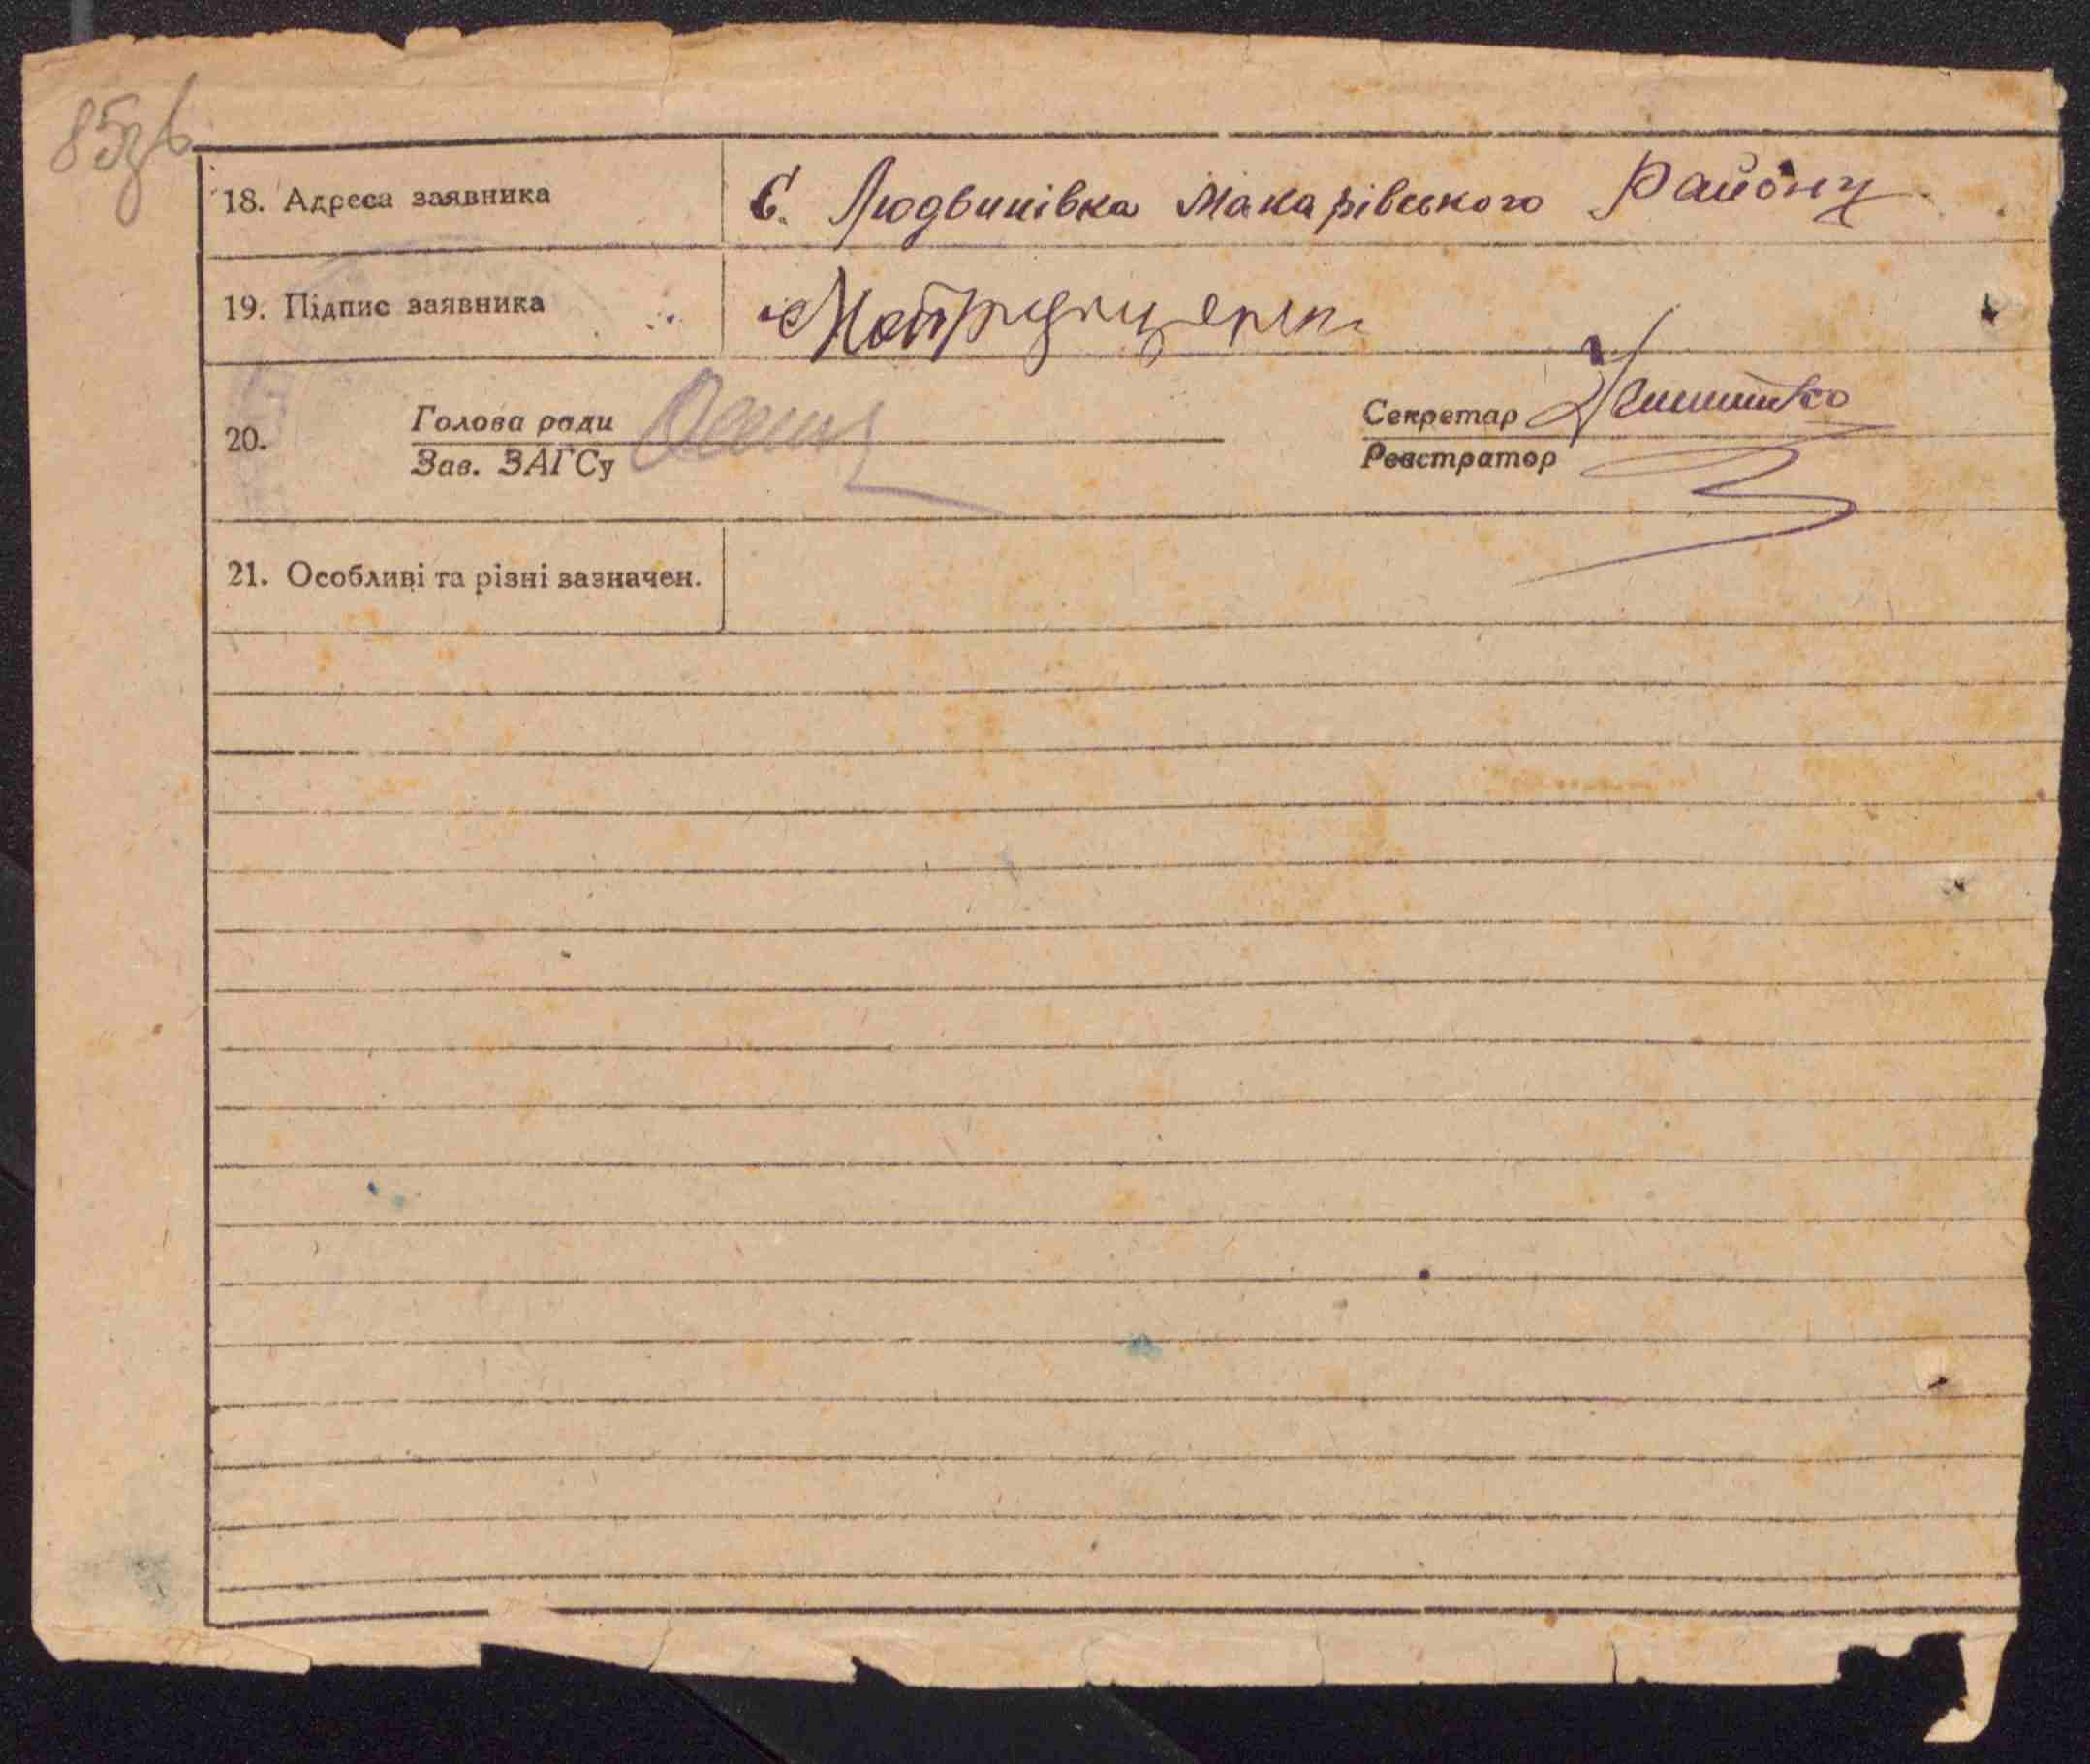 85зв
18. Адреса заявника С. Людвинівка Макарівського Району
19. Підпис заявника
20. Голова ради Секретар
Зав. ЗАГСу Реєстратор
21. Особливі та різні зазначен.